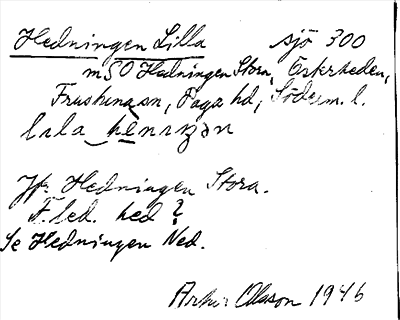 Hedningen Lilla sjö 300
m SO Hedningen Stora, Eskrheden,
Frustuna sn, Daga hd, Söderm. l.
lila
Jfr. Hedningen Stora.
F. led. hed ?
Se Hedningen Ned.
Arthur Olsson 1946